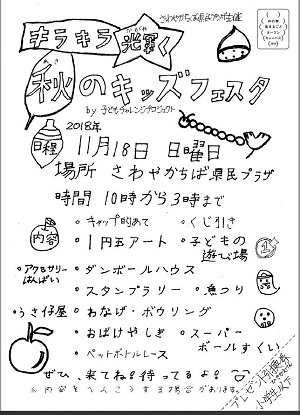 さわやかちば県民プラザ主催
キラキラ光輝く
かがや
秋のキッズフェスタ
by 子どもチャレンジプロジェクト
2018年
日程
11月18日 日曜日
場所 さわやかちば県民プラザ
時間 10時から3時まで
内容
・キャップ的あて ・くじ引き
・1円玉アート ・子どもの
遊び場
・アクセサリー
はんばい
・ダンボールハウス
・スタンプラリー ・魚つり
・うさ仔屋 ・わなげ・ボウリング
・おばけやしき ・スーパー
ボールすくい
・ペットボトルレース
ぜひ、来てね!待ってるよ♪
※内容をへんこうする場合があります。
プレゼント引換券
小学生以下